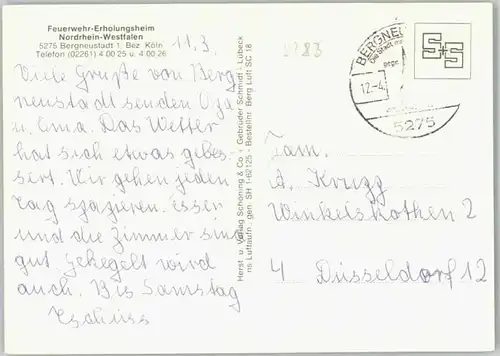 Feuerwehr-Erholungsheim
Nordrhein-Westfalen
5275 Bergneustadt 1, Bez. Köln
Telefon (02261) 4 00 25 u. 4 00 26
11.3.
Viele Grüße von Berg
neustadt senden Opa
u. Oma. Das Wetter
hat sich etwas gebes-
sert. Wir gehen jeden
Tag spazieren. Essen
und die Zimmer sind
gut. Gekegelt wird
auch. Bis Samstag
Tschüss
Herst. u. Verlag Schöning & Co + Gebrüder Schmidt - Lübeck
ns Luftaufn. gen. SH 1-62125 - Bestellnr. Berg Luft SC 18
BERGNE
Die Stadt
12.-4.
5275
S+S
Fam.
A. Krugg
Winkelskothen 2
4 Düsseldorf 12